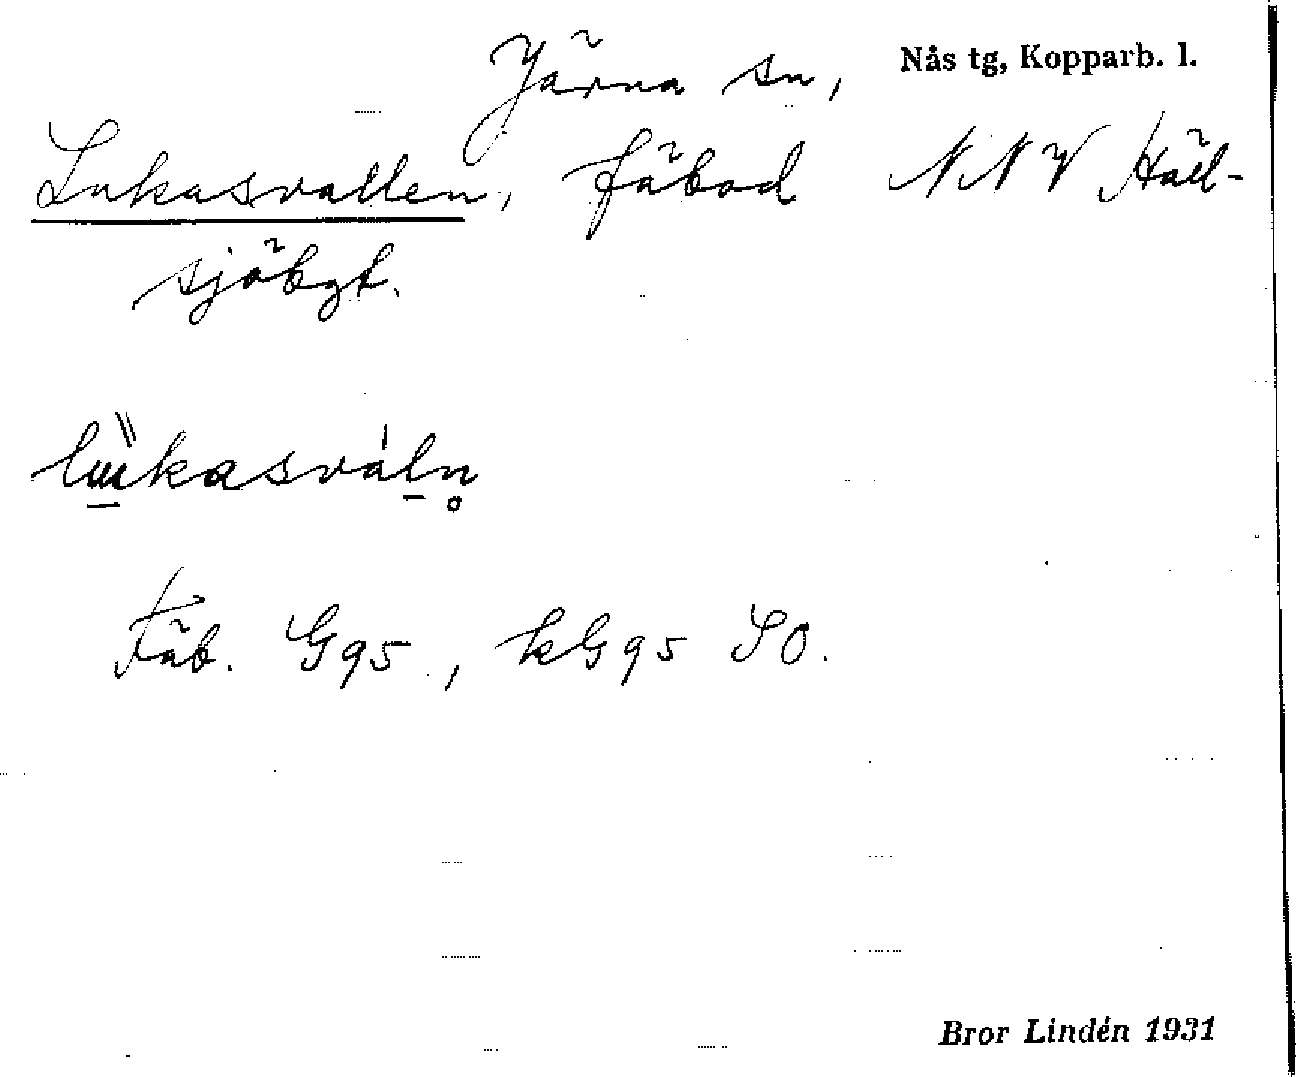 Järna sn, Nås tg, Kopparb. l.
Lukasvallen, fäbod NNV Häll-
sjöbgt.
lukasvaln
Fäb. G95, kG95 SO.
Bror Lindén 1931